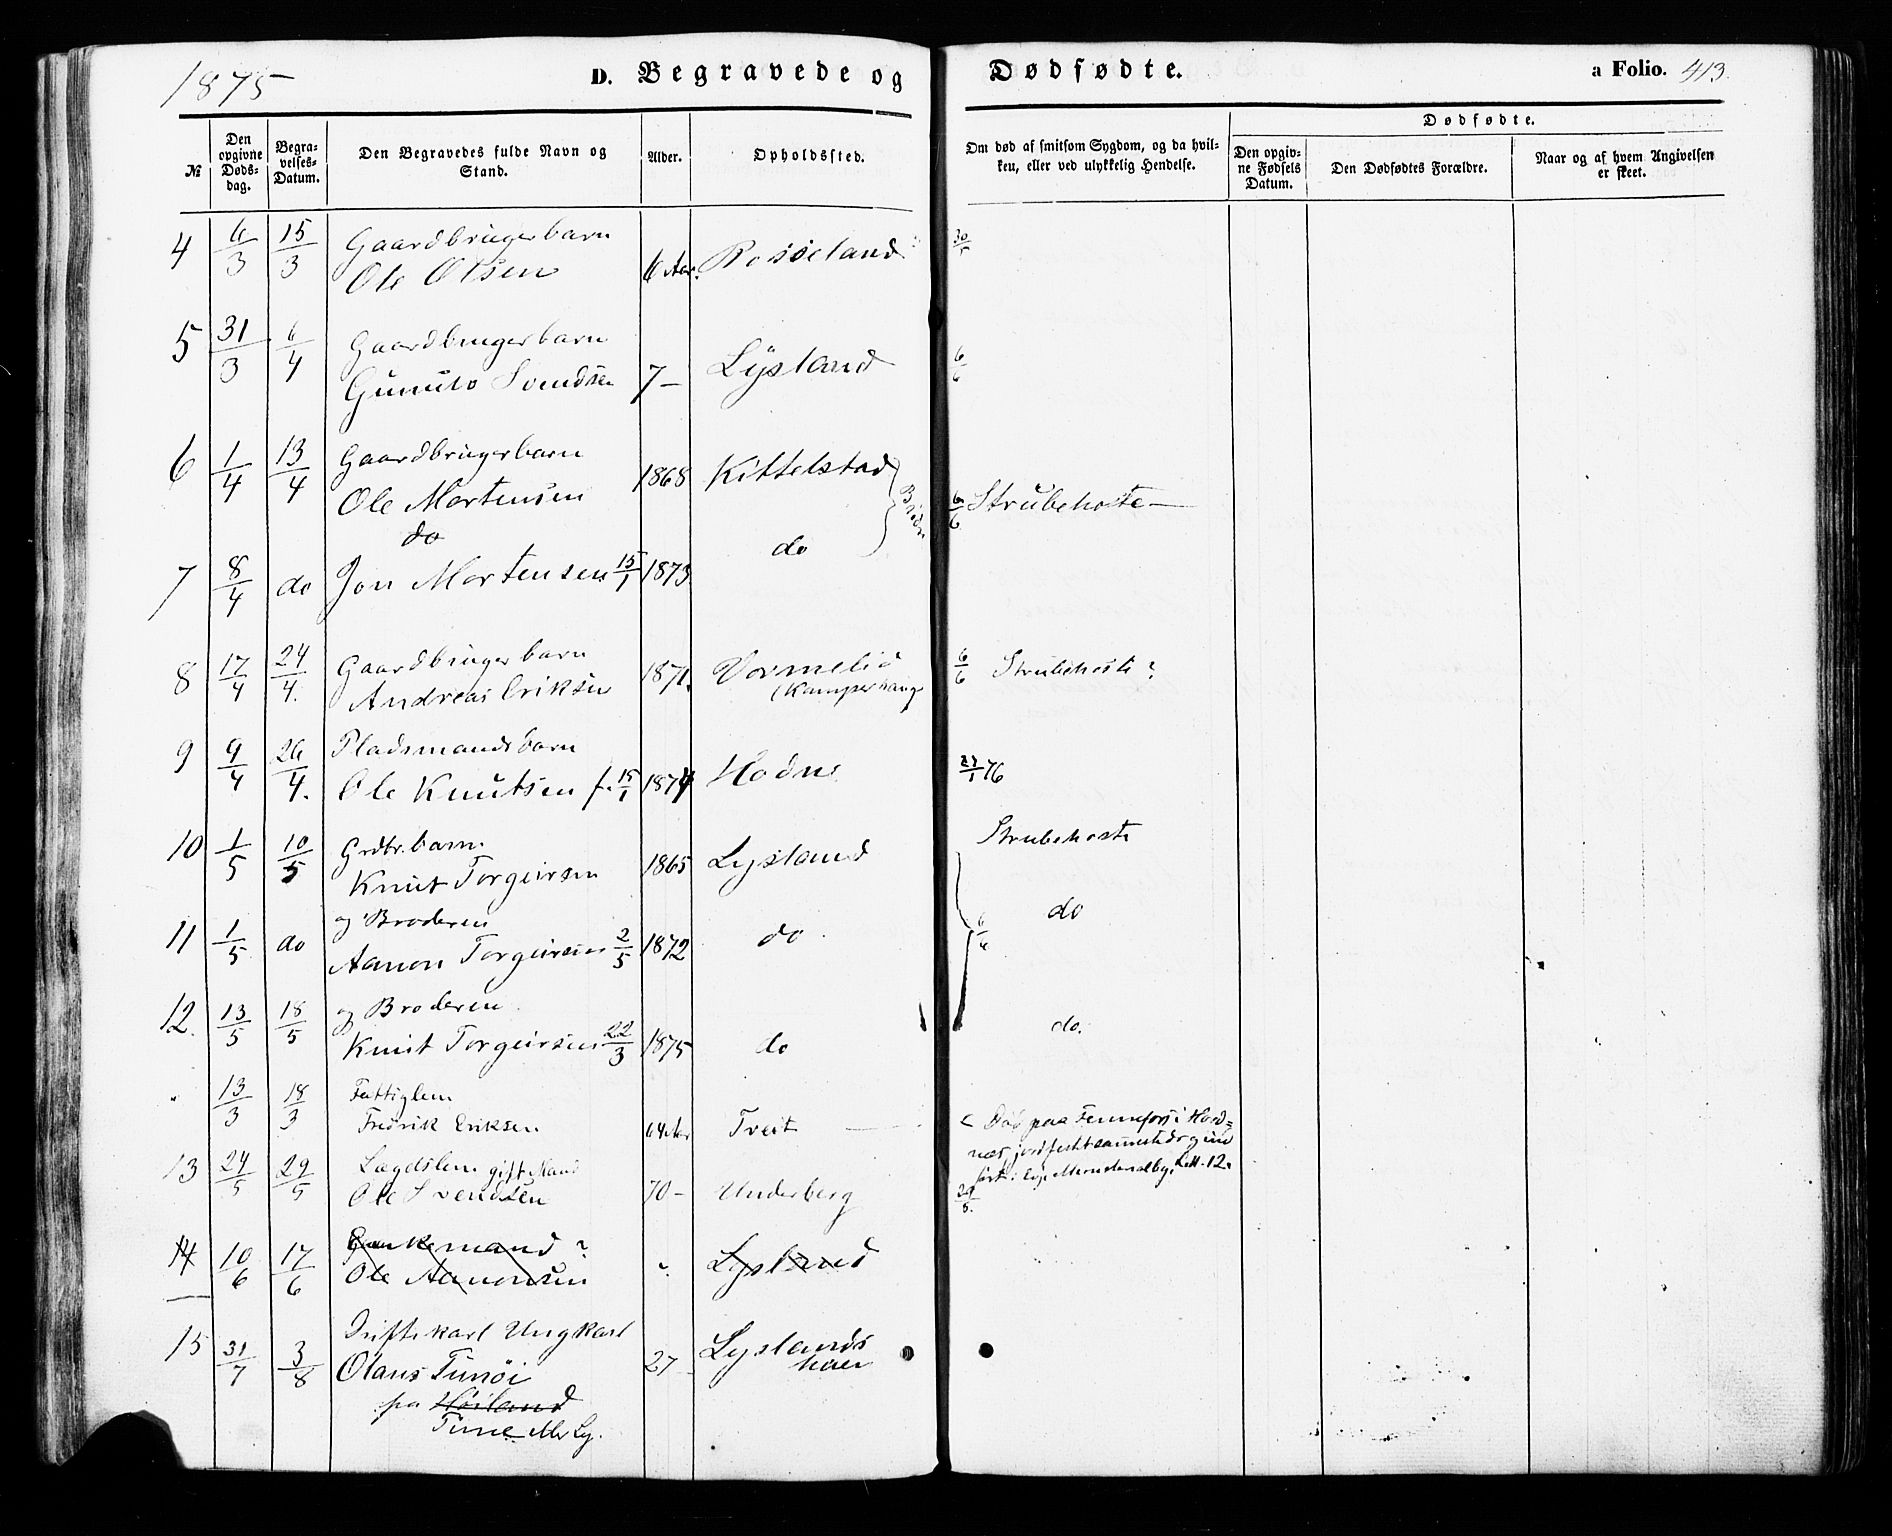 1875
D. Begravede og Dødfødte.
a Folio. 413.
№
Den opgivne Døds-dag.
Begra-velses-Datum.
Den Begravedes fulde Navn og Stand.
Alder.
Opholdssted.
Om død af smitsom Sygdom, og da hvil-ken, eller ved ulykkelig Hendelse.
Dødfødte.
Den opgiv-ne Fødsels Datum.
Den Dødfødtes Forældre.
Naar og af hvem Angivelsen er skeet.
4 6/3 15/3 Gaardbrugerbarn
Ole Olsen 6 Aar. Rosseland
5 31/3 6/4 Gaardbrugerbarn
Gunulv Svendsen 7 – Lÿsland 6/6
6 1/4 13/4 Gaardbrugerbarn
Ole Mortensen 1868 Kittelstad 6/6 Strubehoste –
do
7 8/4 do Jon Mortensen 15/1 1873 do
8 17/4 24/4. Gaardbrugerbarn
Andreas Eriksen 1871. Vormelid 6/6 Strubehoste ?
(Kamperhaug
9 9/4 26/4. Pladsmandsbarn
Ole Knutsen f. 15/1 1874 Hodne 76
10 1/5 10/5 Grdbr.barn
Knut Torgeirsen 1865 Lysland Strubehoste
11 1/5 do og Broderen
Aanon Torgeirsen 2/5 1872 do do
12. 13/5 18/5 og Broderen
Knut Torgeirsen 22/3 1875 do do.
13/3 18/3 Fattiglem
Fredrik Eriksen 64 Aar Tveit Død paa Fennefoss i Hord=
nes, jordfestet sammesteds og ind
ført i Evje Ministerialbog. Litt. 12.
13 24/5 29/5 Lægdslem gift Mand
Ole Svendsen 70 – Underberg 29/5.
14 10/6 17/6 Enkemand ?
Ole Aanonsen Lysland
15 31/7 3/8 Driftekarl Ungkarl
Olaus Tunøi 27 – Lyslands
heien
paa Høiland
Time